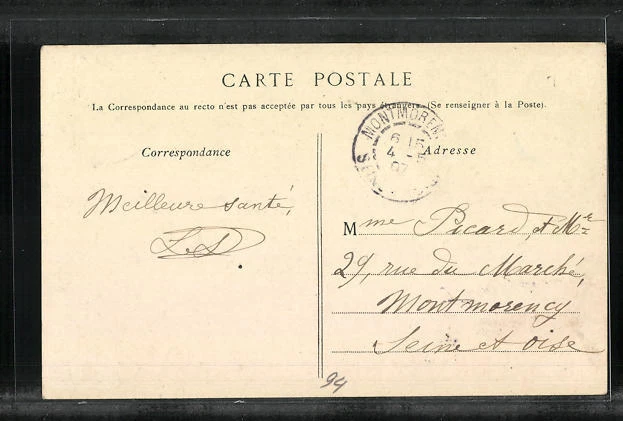 CARTE POSTALE
La Correspondance au recto n'est pas acceptée par tous les pays étrangers. (Se renseigner à la Poste).
MONTMOREN
6 15
4 - 5
07
Correspondance
Adresse
Meilleure santé,
Mme Picard, et Mr
29, rue du Marché,
Montmorency
Seine et Oise
94